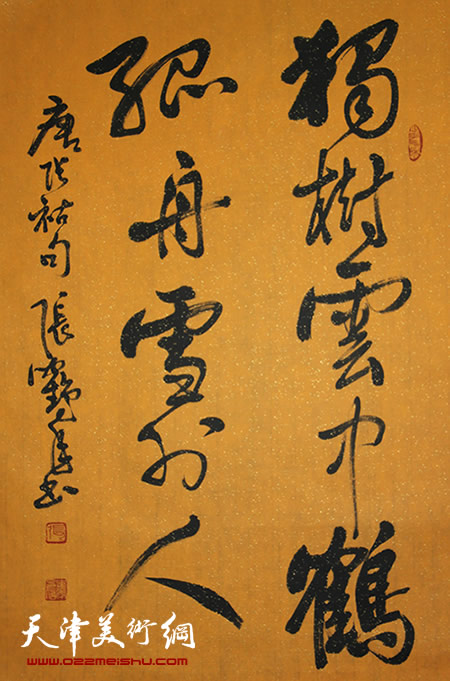 獨樹雲中鶴
孤舟雪外人
唐张祜句 張鶴年書
天津美術網
www.022meishu.com